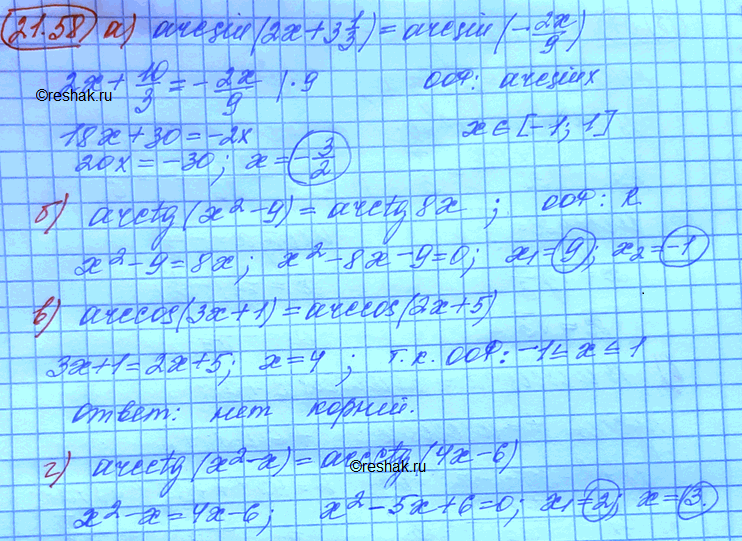 21.58 а) arcsin(2x+3 1/3) = arcsin(-2x/9)
2x + 10/3 = -2x/9 | · 9 ООФ: arcsin x
©reshak.ru
18x+30 = -2x x ∈ [-1; 1]
20x = -30; x = -3/2
б) arctg(x²-9) = arctg 8x ; ООФ: R
x²-9 = 8x; x²-8x-9=0; x₁=9; x₂=-1
в) arccos(3x+1) = arccos(2x+5)
3x+1=2x+5; x=4 ; т.к. ООФ: -1≤x≤1
ответ: нет корний.
г) arcctg(x²-x) = arcctg(4x-6)
©reshak.ru
x²-x=4x-6; x²-5x+6=0; x₁=2; x=3.